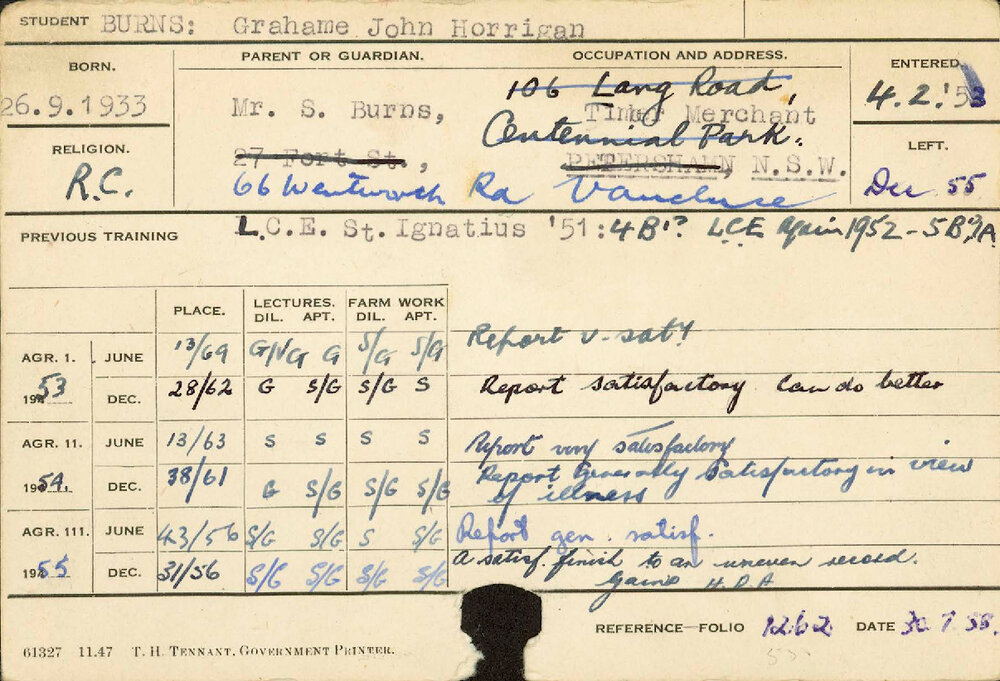 STUDENT BURNS: Grahame John Horrigan
BORN. PARENT OR GUARDIAN. OCCUPATION AND ADDRESS. ENTERED.
26.9.1933 Mr. S. Burns, 106 Lang Road, 4.2.'53
Timber Merchant
Centennial Park.
RELIGION. 27 Fort St., PETERSHAM N.S.W. LEFT.
R.C. 66 Wentworth Rd Vaucluse Dec 55
PREVIOUS TRAINING L.C.E. St. Ignatius '51: 4B'? LCE Again 1952 - 5B'?A
PLACE. LECTURES. FARM WORK
DIL. APT. DIL. APT.
AGR. 1. JUNE 13/69 G/VG G S/G S/G Report v. sat'y
1953 DEC. 28/62 G S/G S/G S Report satisfactory Can do better
AGR. 11. JUNE 13/63 S S S S Report very satisfactory
1954. DEC. 38/61 G S/G S/G S/G Report Generally Satisfactory in view
of illness
AGR. 111. JUNE 43/56 S/G S/G S S/G Report gen. satisf.
1955 DEC. 31/56 S/G S/G S/G S/G A satisf. finish to an uneven record.
Gains H.D.A
REFERENCE—FOLIO 1262 DATE 30.7.58.
61327 11.47 T. H. TENNANT, GOVERNMENT PRINTER.